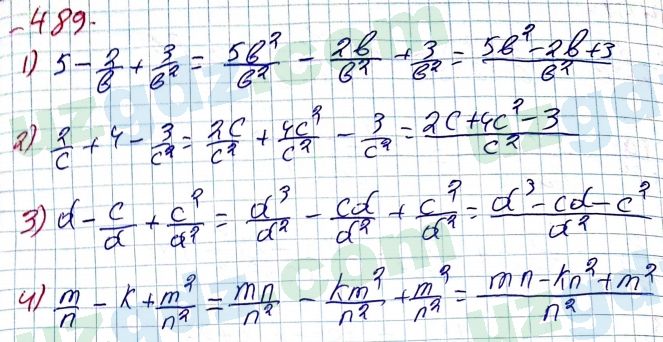 489.
1) 5 - 2/b + 3/b² = 5b²/b² - 2b/b² + 3/b² = (5b² - 2b + 3)/b²
2) 2/c + 4 - 3/c² = 2c/c² + 4c²/c² - 3/c² = (2c + 4c² - 3)/c²
3) d - c/d + c²/d² = d³/d² - cd/d² + c²/d² = (d³ - cd - c²)/d²
4) m/n - k + m²/n² = mn/n² - km²/n² + m²/n² = (mn - kn² + m²)/n²
uzgdz.com